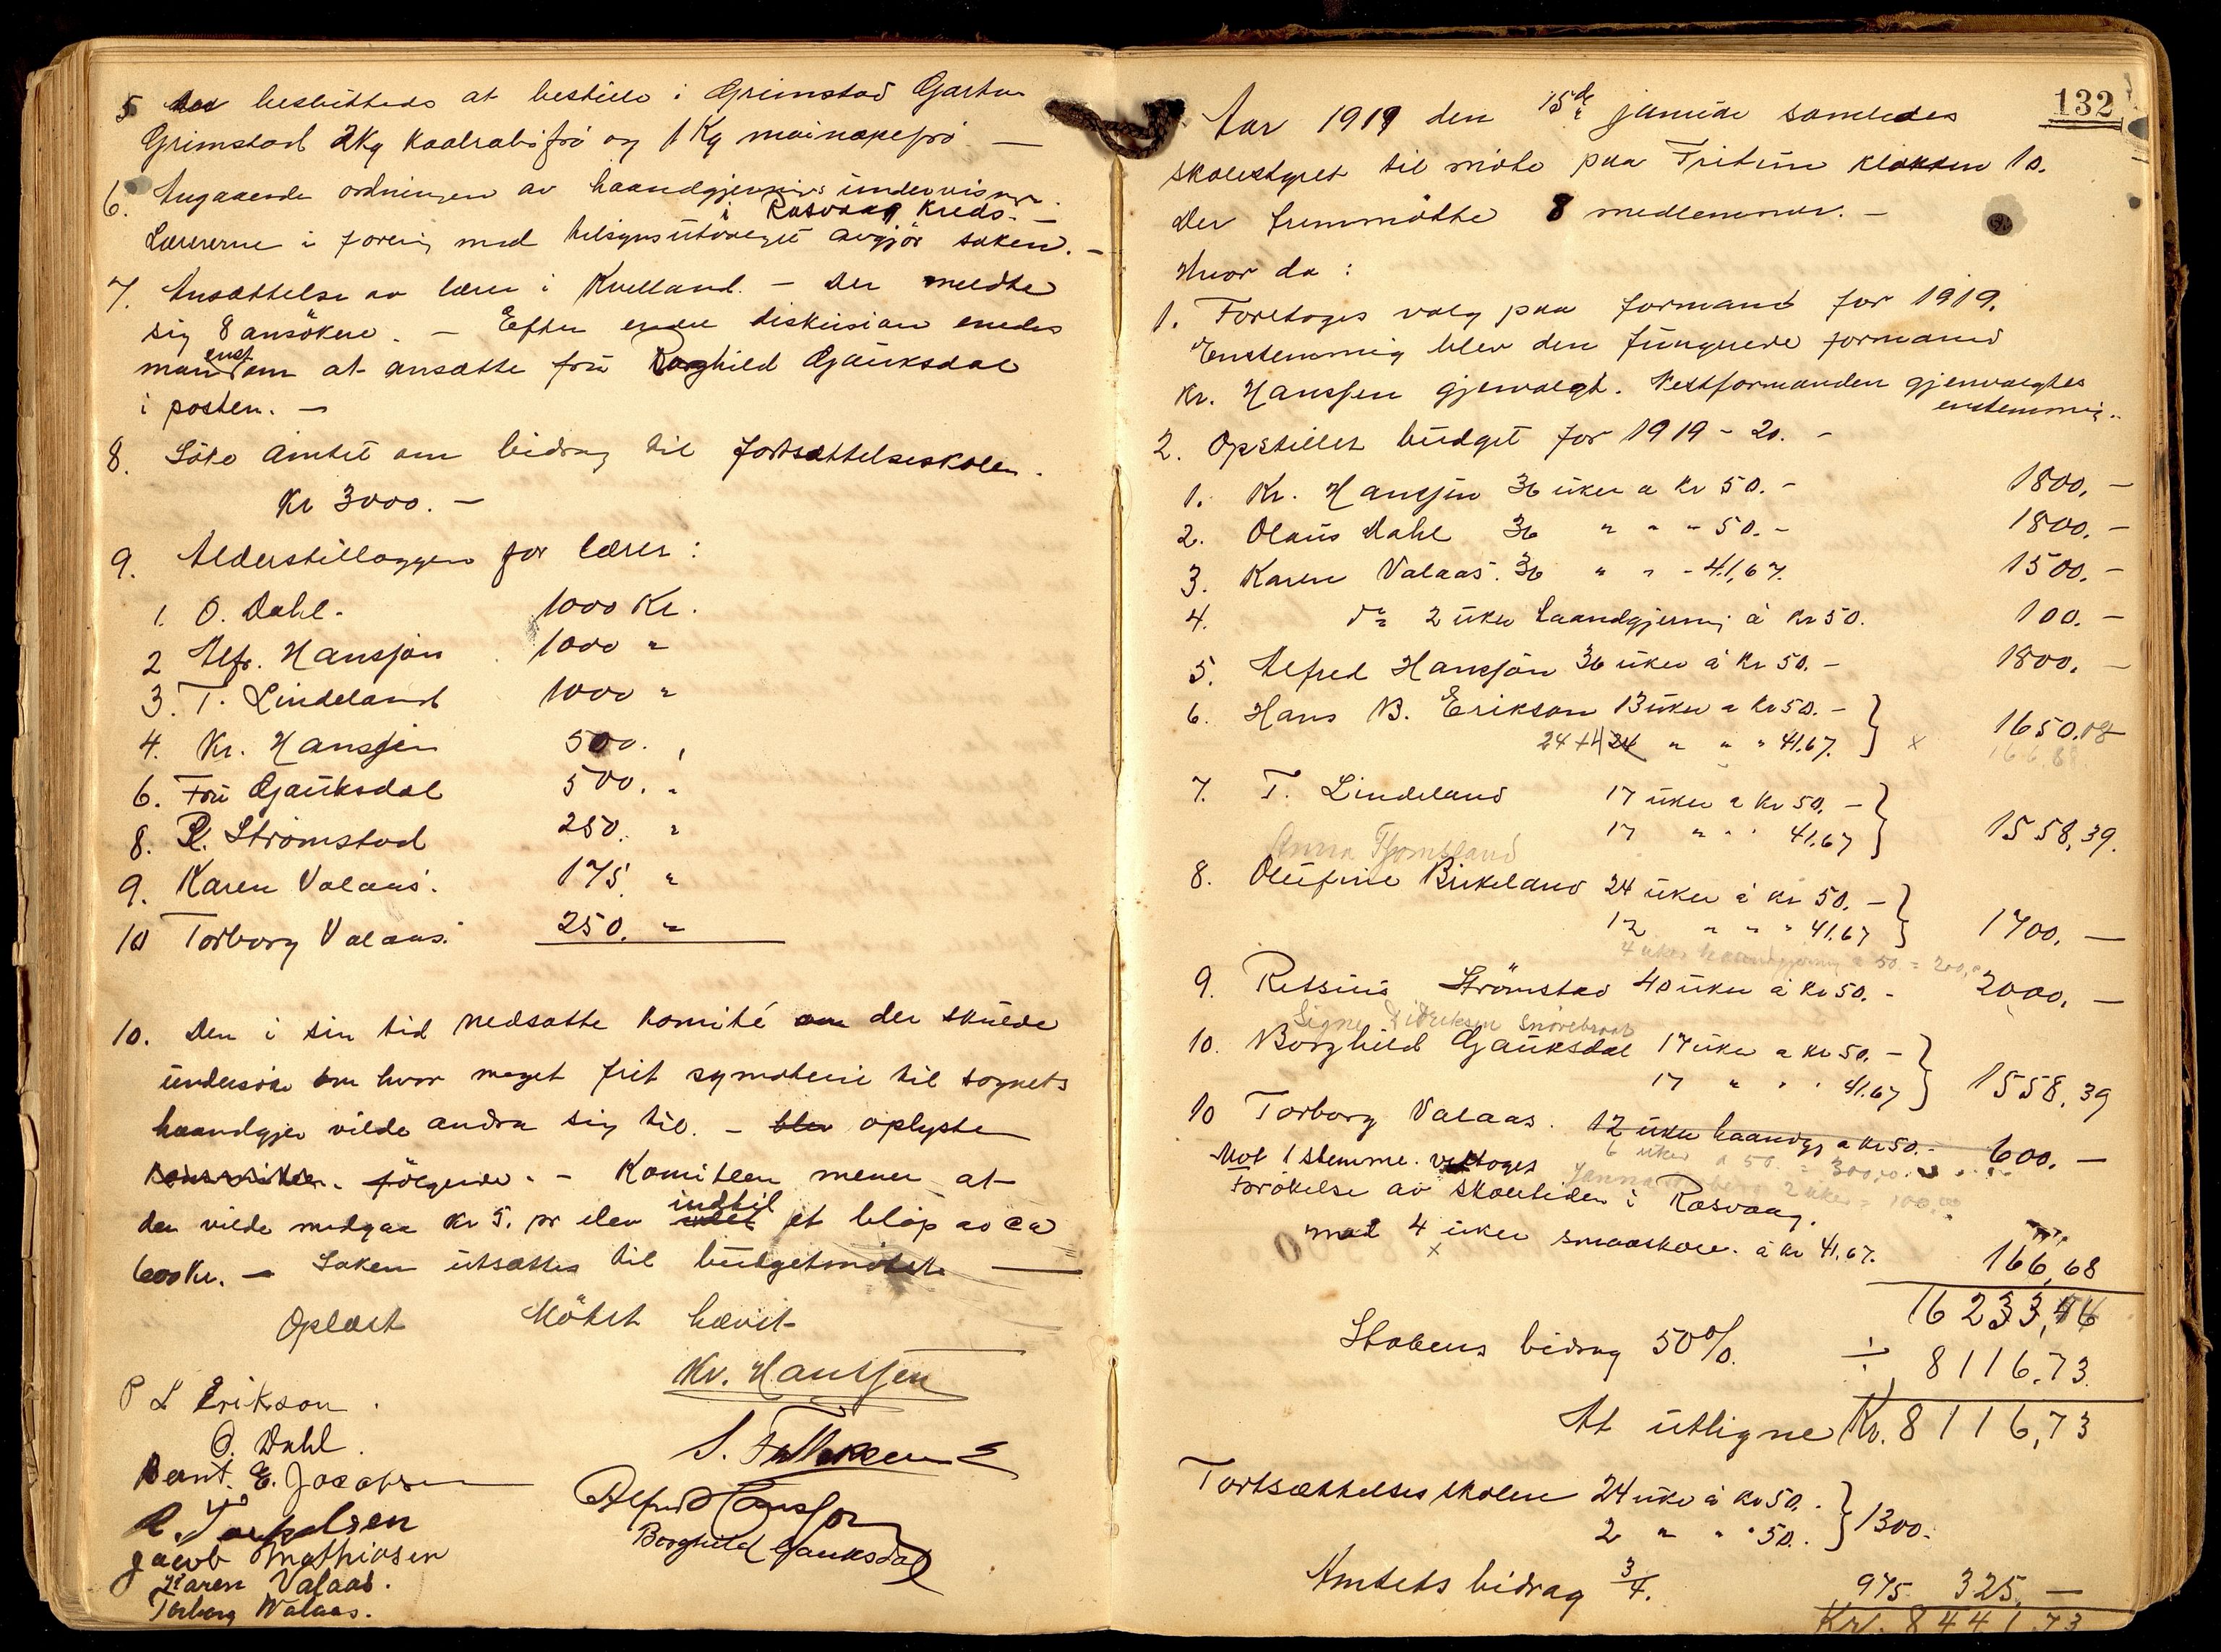 5 Det besluttedes at bestille i Grimstad Gartn
Grimstad 2Kg Kaalrabifrö og 1 Kg mainæpefrö —
6. Angaaende ordningen av haandgjernings undervisn.
i Rasvaag Kreds. —
Lærerne i forening med tilsynsutvalget avgjör saken. —
7. Ansættelse av lærer i Kvelland. — Der meldte
sig 8 ansökere. — Efter endel diskusion enedes
enst
man om at ansætte fru Borghild Gjauksdal
i posten. —
8. Söke Amtet om bidrag til fortsættelseskolen.
Kr 3000. —
9. Alderstillæggen for lærer:
1. O. Dahl. 1000 Kr.
2 Alfr. Hansson 1000 "
3. T. Lindeland 1000 "
4. Kr. Hanssen 500. "
6. Fru Gjauksdal 500. "
8. R. Strömstad 250. "
9. Karen Valaas. 175 "
10 Torborg Valaas. 250. "
10. Den i sin tid nedsatte komité der skulde
undersöke om hvor meget frit symateriel til sognets
haandgjer vilde andra sig til. — blev oplyste
Komiteen. fölgende. — Komiteen mener at
indtil
der vilde medgaa Kr 5. pr elev et belöp av ca
600 Kr. — Saken utsættes til budgetmötet —
Oplæst Mötet hævet
Kr. Hanssen
P L Erikson.
O. Dahl.
Bernt. E. Jacobsen
Alfred Hansson
Borghild Gjauksdal
Jacob Mathiasen
Karen Valaas.
Torborg Walaas.
132
Aar 1919 den 15de januar samledes
skolestyret til möte paa Fritun klokken 10.
Der fremmötte 8 medlemmer. —
Hvor da:
1. Foretoges valg paa formand for 1919.
Enstemmig blev den fungerede formand
Kr. Hanssen gjenvalgt. Vestformanden gjenvalgtes
enstemmig.
2. Opstilles budget for 1919 - 20. —
1. Kr. Hanssen 36 uker a kr 50. — 1800. —
2. Olaus Dahl 36 " " " 50. — 1800. —
3. Karen Valaas. 36 " " " 41,67. 1500. —
4. do 2 uker haandgjerning á Kr 50. 100. —
5. Alfred Hansson 36 uker á kr 50. — 1800. —
6. Hans B. Erikson 13 uker a kr 50. —
24 + 4 24 " " " 41.67. } x 1650.08
7. T. Lindeland 17 uker a kr 50. —
17 " " " 41,67 } 1558,39.
Anna Tjomsland
8. Olufine Birkeland 24 uker á kr 50. —
12 " " " 41.67 } 1700. —
4 uker haandgjerning a 50 = 200,
9. Retsius Strömstad 40 uker á kr 50. — 2000. —
Signe Didriksen
10. Borghild Gjauksdal 17 uker a kr 50. —
17 " " " 41.67 } 1558,39
10 Torborg Valaas. 12 uker haandgj a kr 50. — 600. —
6 uker a 50. = 300,00
Mot 1 stemme. vedtoges
2 uker = 100,00
forökelse av skoletiden i Rasvaag.
med 4 uker smaaskole. á kr 41.67. 166,68
x
16233,46
Statens bidrag 50% ÷ 8116.73.
At utligne Kr. 8116,73
Fortsættelsesskolen 24 uker á kr 50.
2 " " " 50. } 1300.
Amtets bidrag 3/4. 975 325. —
Kr. 8441.73